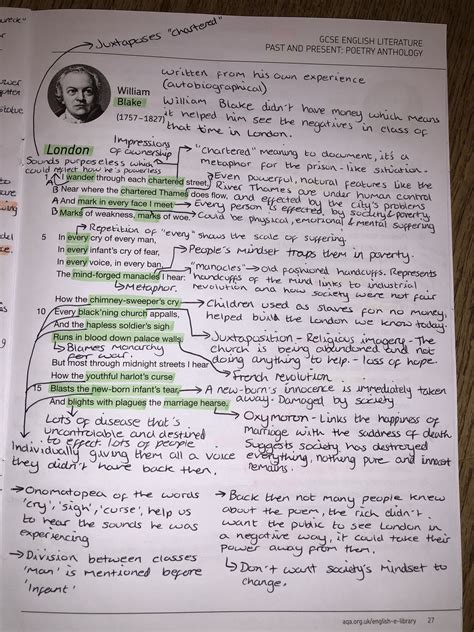 Juxtaposes "chartered"
GCSE ENGLISH LITERATURE
PAST AND PRESENT: POETRY ANTHOLOGY
written from his own experience
(autobiographical)
William
Blake
(1757–1827)
William Blake didn't have money which means
it helped him see the negatives in class of
that time in London.
Impressions
of ownership
London
Sounds purposeless which
could reflect how he's powerless
"chartered" meaning to document, its a
metaphor for the prison-like situation.
A I wander through each chartered street,
B Near where the chartered Thames does flow,
A And mark in every face I meet
B Marks of weakness, marks of woe.
Even powerful, natural features like the
River Thames are under human control
and effected by the city's problems
Every person is effected by society & poverty
Could be physical, emotional & mental suffering
Repetition of "every" shows the scale of suffering.
5 In every cry of every man,
In every infant's cry of fear,
In every voice, in every ban,
The mind-forged manacles I hear:
People's mindset traps them in poverty.
Metaphor.
"manacles" → old fashioned handcuffs. Represents
handcuffs of the mind links to industrial
revolution and how society were not fair
How the chimney-sweeper's cry
10 Every black'ning church appalls,
And the hapless soldier's sigh
Runs in blood down palace walls.
Children used as slaves for no money,
helped build the London we know today.
Juxtaposition - Religious imagery - The
church is being abandoned and not
doing anything to help - loss of hope.
Blames monarchy
for war.
French revolution.
But most through midnight streets I hear
How the youthful harlot's curse
15 Blasts the new-born infant's tear,
And blights with plagues the marriage hearse.
A new-born's innocence is immediately taken
away. Damaged by society
Oxymoron - Links the happiness of
marriage with the saddness of death
Suggests society has destroyed
everything, nothing pure and innocent
remains.
Lots of disease that's
uncontrollable and destined
to effect lots of people
Individually giving them all a voice
they didn't have back then.
→ Onomatopea of the words
'cry', 'sigh', 'curse', help us
to hear the sounds he was
experiencing
→ Division between classes
'Man' is mentioned before
'Infant'
→ Back then not many people knew
about the poem, the rich didn't
want the public to see London in
a negative way, it could take their
power away from them.
↳ Don't want society's mindset to
change.
aqa.org.uk/english-e-library
27